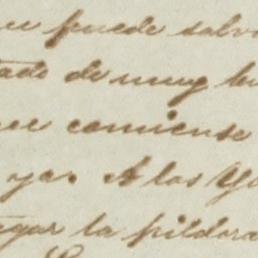 ue puede salv
tado de muy bu
ue comiense
ya. A los Ya
agar la pildora